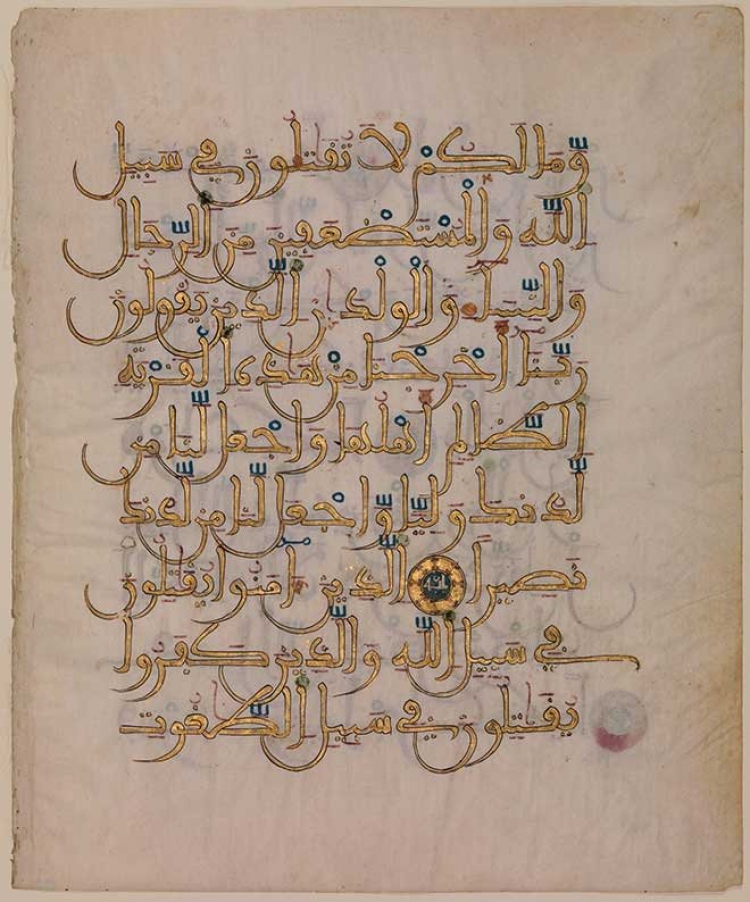 وما لكم لا تقتلون في سبيل
الله والمستضعفين من الرجال
والنساء والولدن الذين يقولون
ربنا أخرجنا من هذه القرية
الظالم أهلها واجعل لنا من
لدنك وليا واجعل لنا من لدنك
نصيرا الذين ءامنوا يقتلون
في سبيل الله والذين كفروا
يقتلون في سبيل الطغوت